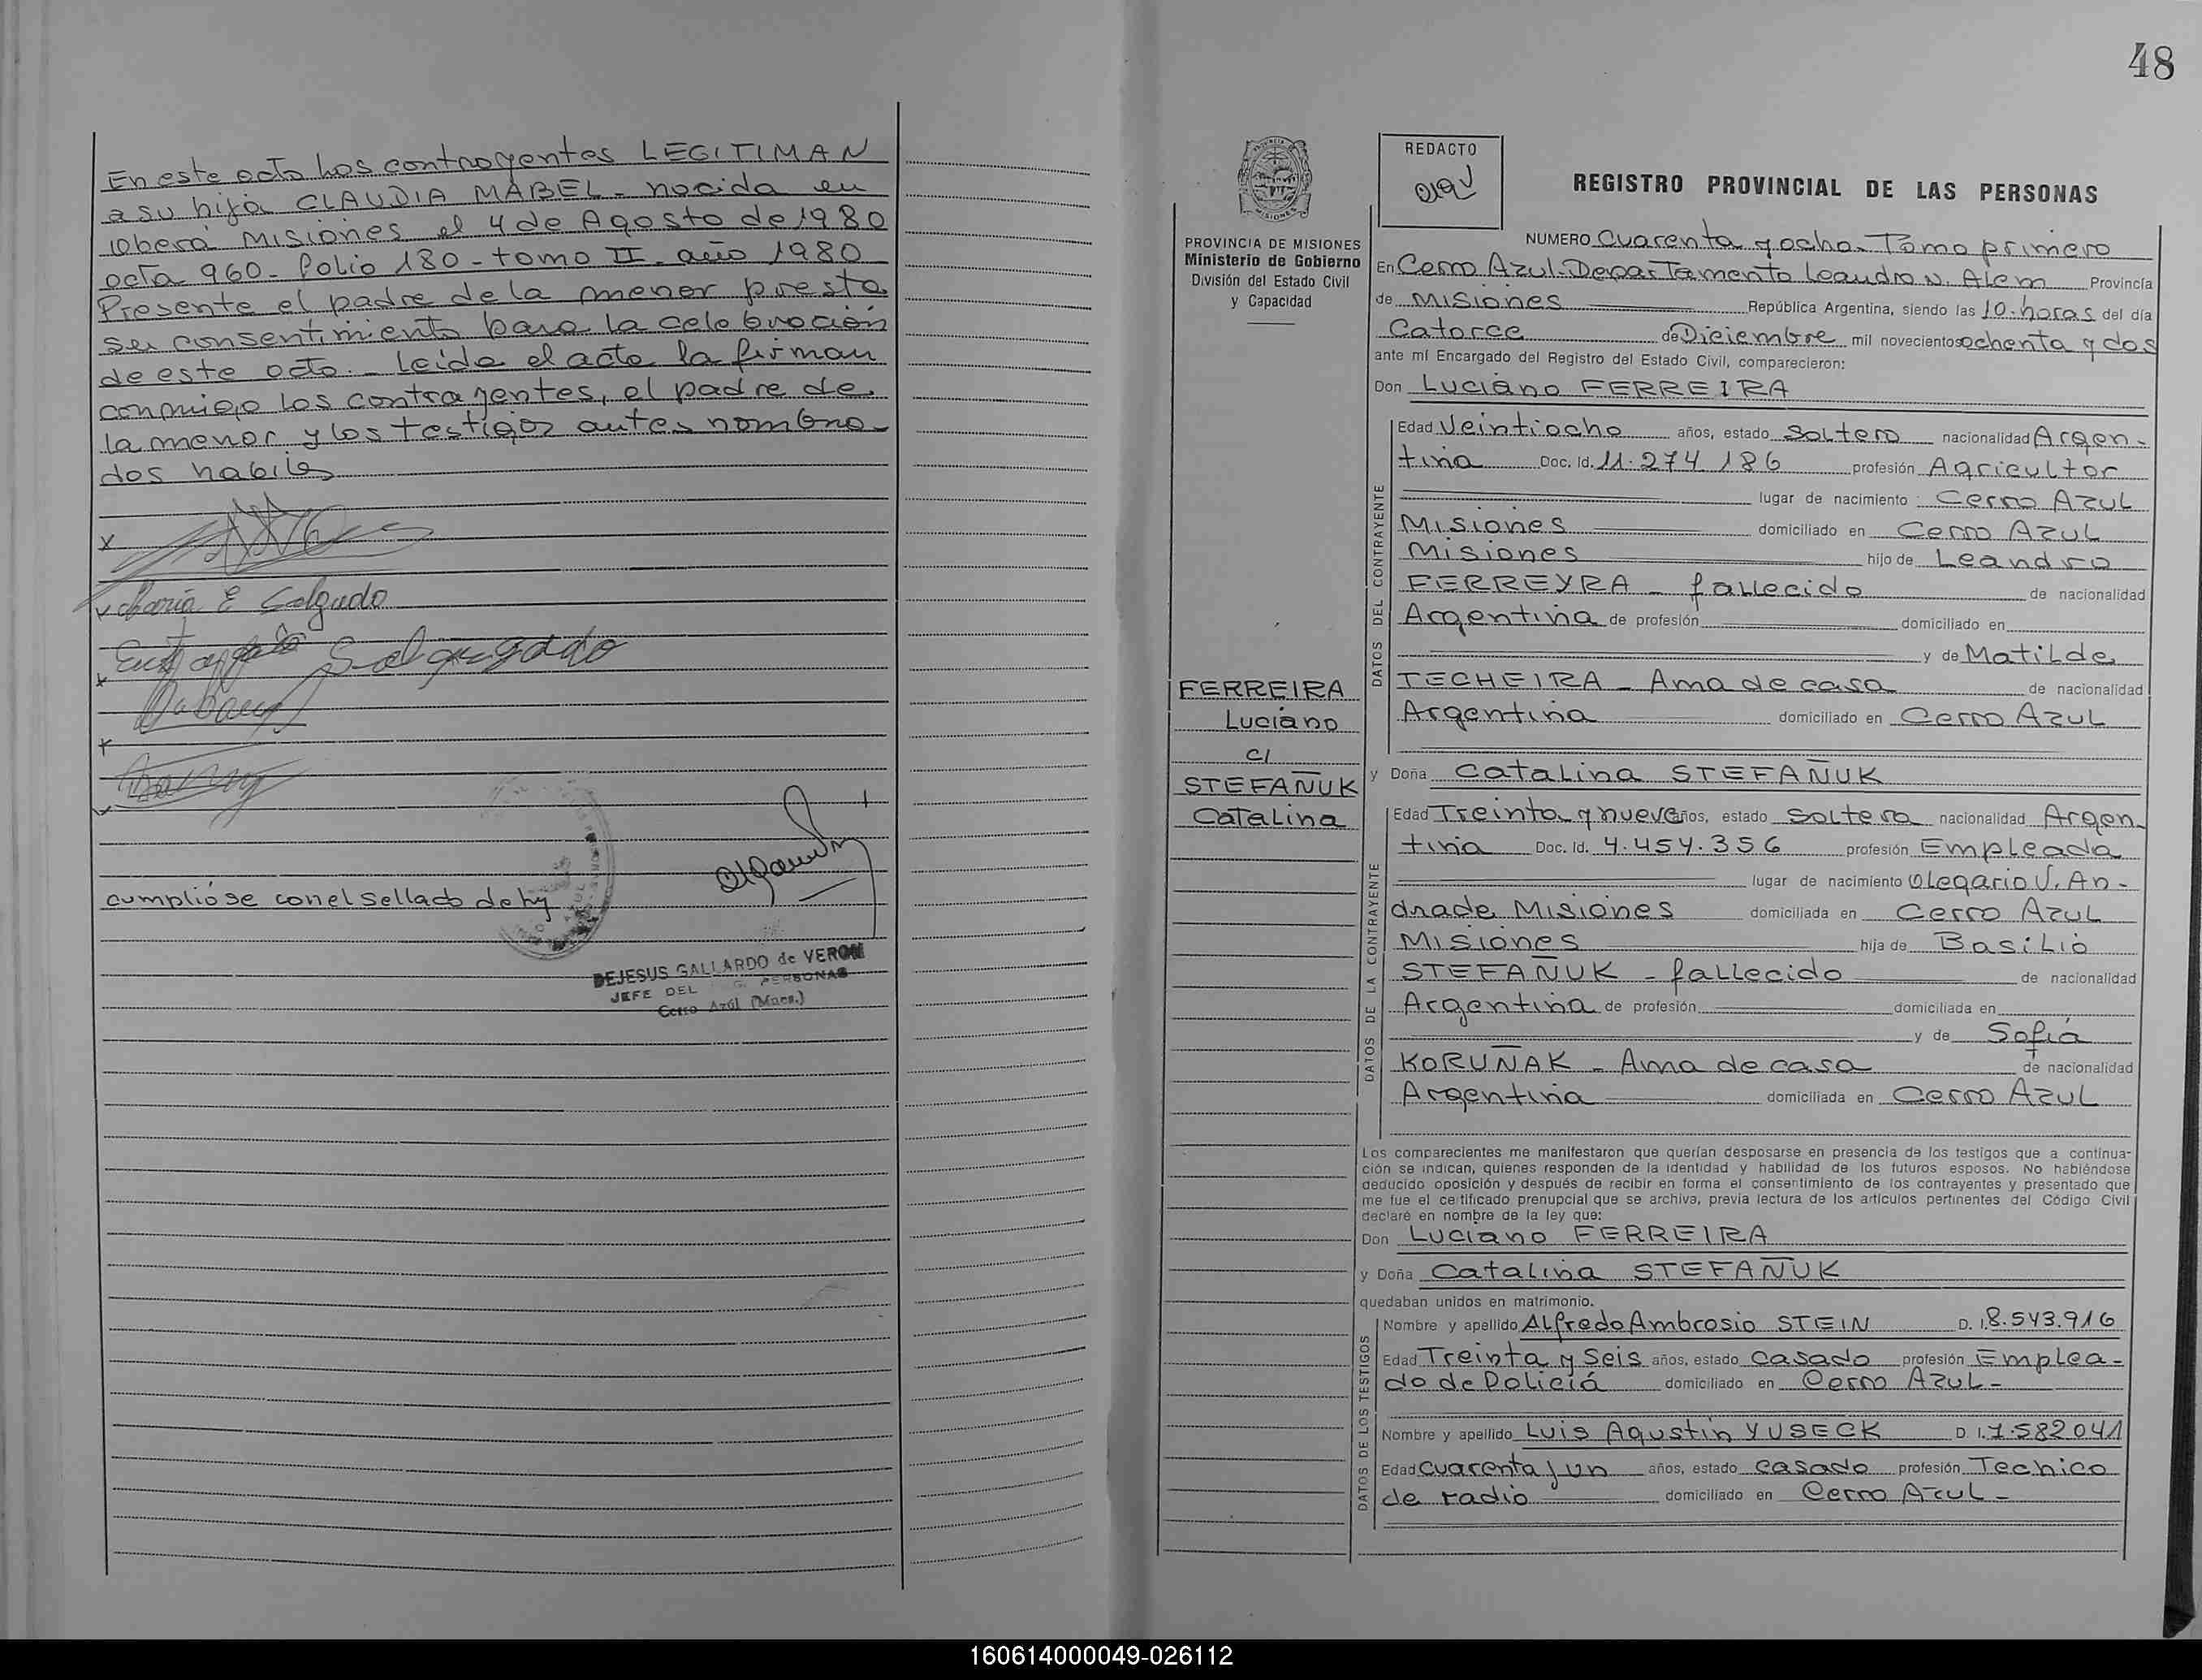 En este acto los contrayentes LEGITIMAN
a su hija CLAUDIA MABEL - nacida en
Oberá Misiones el 4 de Agosto de 1980
acta 960 - folio 180 - tomo II - año 1980
Presente el padre de la menor presta
su consentimiento para la celebración
de este acto. - Leida el acta la firman
conmigo los contrayentes, el padre de
la menor y los testigos antes nombra-
dos habiles
x
x Maria E Salgado
x
x
cumplióse con el sellado de ley
DEJESUS GALLARDO de VERON
JEFE DEL PERSONAS
Cerro Azúl (Mnes.)
48
REDACTO
REGISTRO PROVINCIAL DE LAS PERSONAS
MISIONES
PROVINCIA DE MISIONES
Ministerio de Gobierno
División del Estado Civil
y Capacidad
FERREIRA
Luciano
c/
STEFAÑUK
Catalina
NUMERO Cuarenta y ocho - Tomo primero
En Cerro Azul - Departamento Leandro N. Alem Provincia
de Misiones República Argentina, siendo las 10 horas del día
Catorce de Diciembre mil novecientos ochenta y dos
ante mí Encargado del Registro del Estado Civil, comparecieron:
Don Luciano FERREIRA
DATOS DEL CONTRAYENTE
Edad Veintiocho años, estado Soltero nacionalidad Argen-
tina Doc. Id. 11.274.186 profesión Agricultor
lugar de nacimiento Cerro Azul
Misiones domiciliado en Cerro Azul
Misiones hijo de Leandro
FERREYRA - fallecido de nacionalidad
Argentina de profesión domiciliado en
y de Matilde
TECHEIRA - Ama de casa de nacionalidad
Argentina domiciliado en Cerro Azul
y Doña Catalina STEFAÑUK
DATOS DE LA CONTRAYENTE
Edad Treinta y nueve años, estado Soltera nacionalidad Argen-
tina Doc. Id. 4.454.356 profesión Empleada
lugar de nacimiento Olegario V. An-
drade Misiones domiciliada en Cerro Azul
Misiones hija de Basilio
STEFAÑUK - fallecido de nacionalidad
Argentina de profesión domiciliada en
y de Sofía
KORUÑAK - Ama de casa de nacionalidad
Argentina domiciliada en Cerro Azul
Los comparecientes me manifestaron que querían desposarse en presencia de los testigos que a continua-
ción se indican, quienes responden de la identidad y habilidad de los futuros esposos. No habiéndose
deducido oposición y después de recibir en forma el consentimiento de los contrayentes y presentado que
me fue el certificado prenupcial que se archiva, previa lectura de los artículos pertinentes del Código Civil
declaré en nombre de la ley que:
Don Luciano FERREIRA
y Doña Catalina STEFAÑUK
quedaban unidos en matrimonio.
DATOS DE LOS TESTIGOS
Nombre y apellido Alfredo Ambrosio STEIN D. I. 8.543.916
Edad Treinta y Seis años, estado Casado profesión Emplea-
do de Policia domiciliado en Cerro Azul -
Nombre y apellido Luis Agustin YUSECK D. I. 7.582.041
Edad Cuarenta y un años, estado Casado profesión Tecnico
de radio domiciliado en Cerro Azul -
160614000049-026112